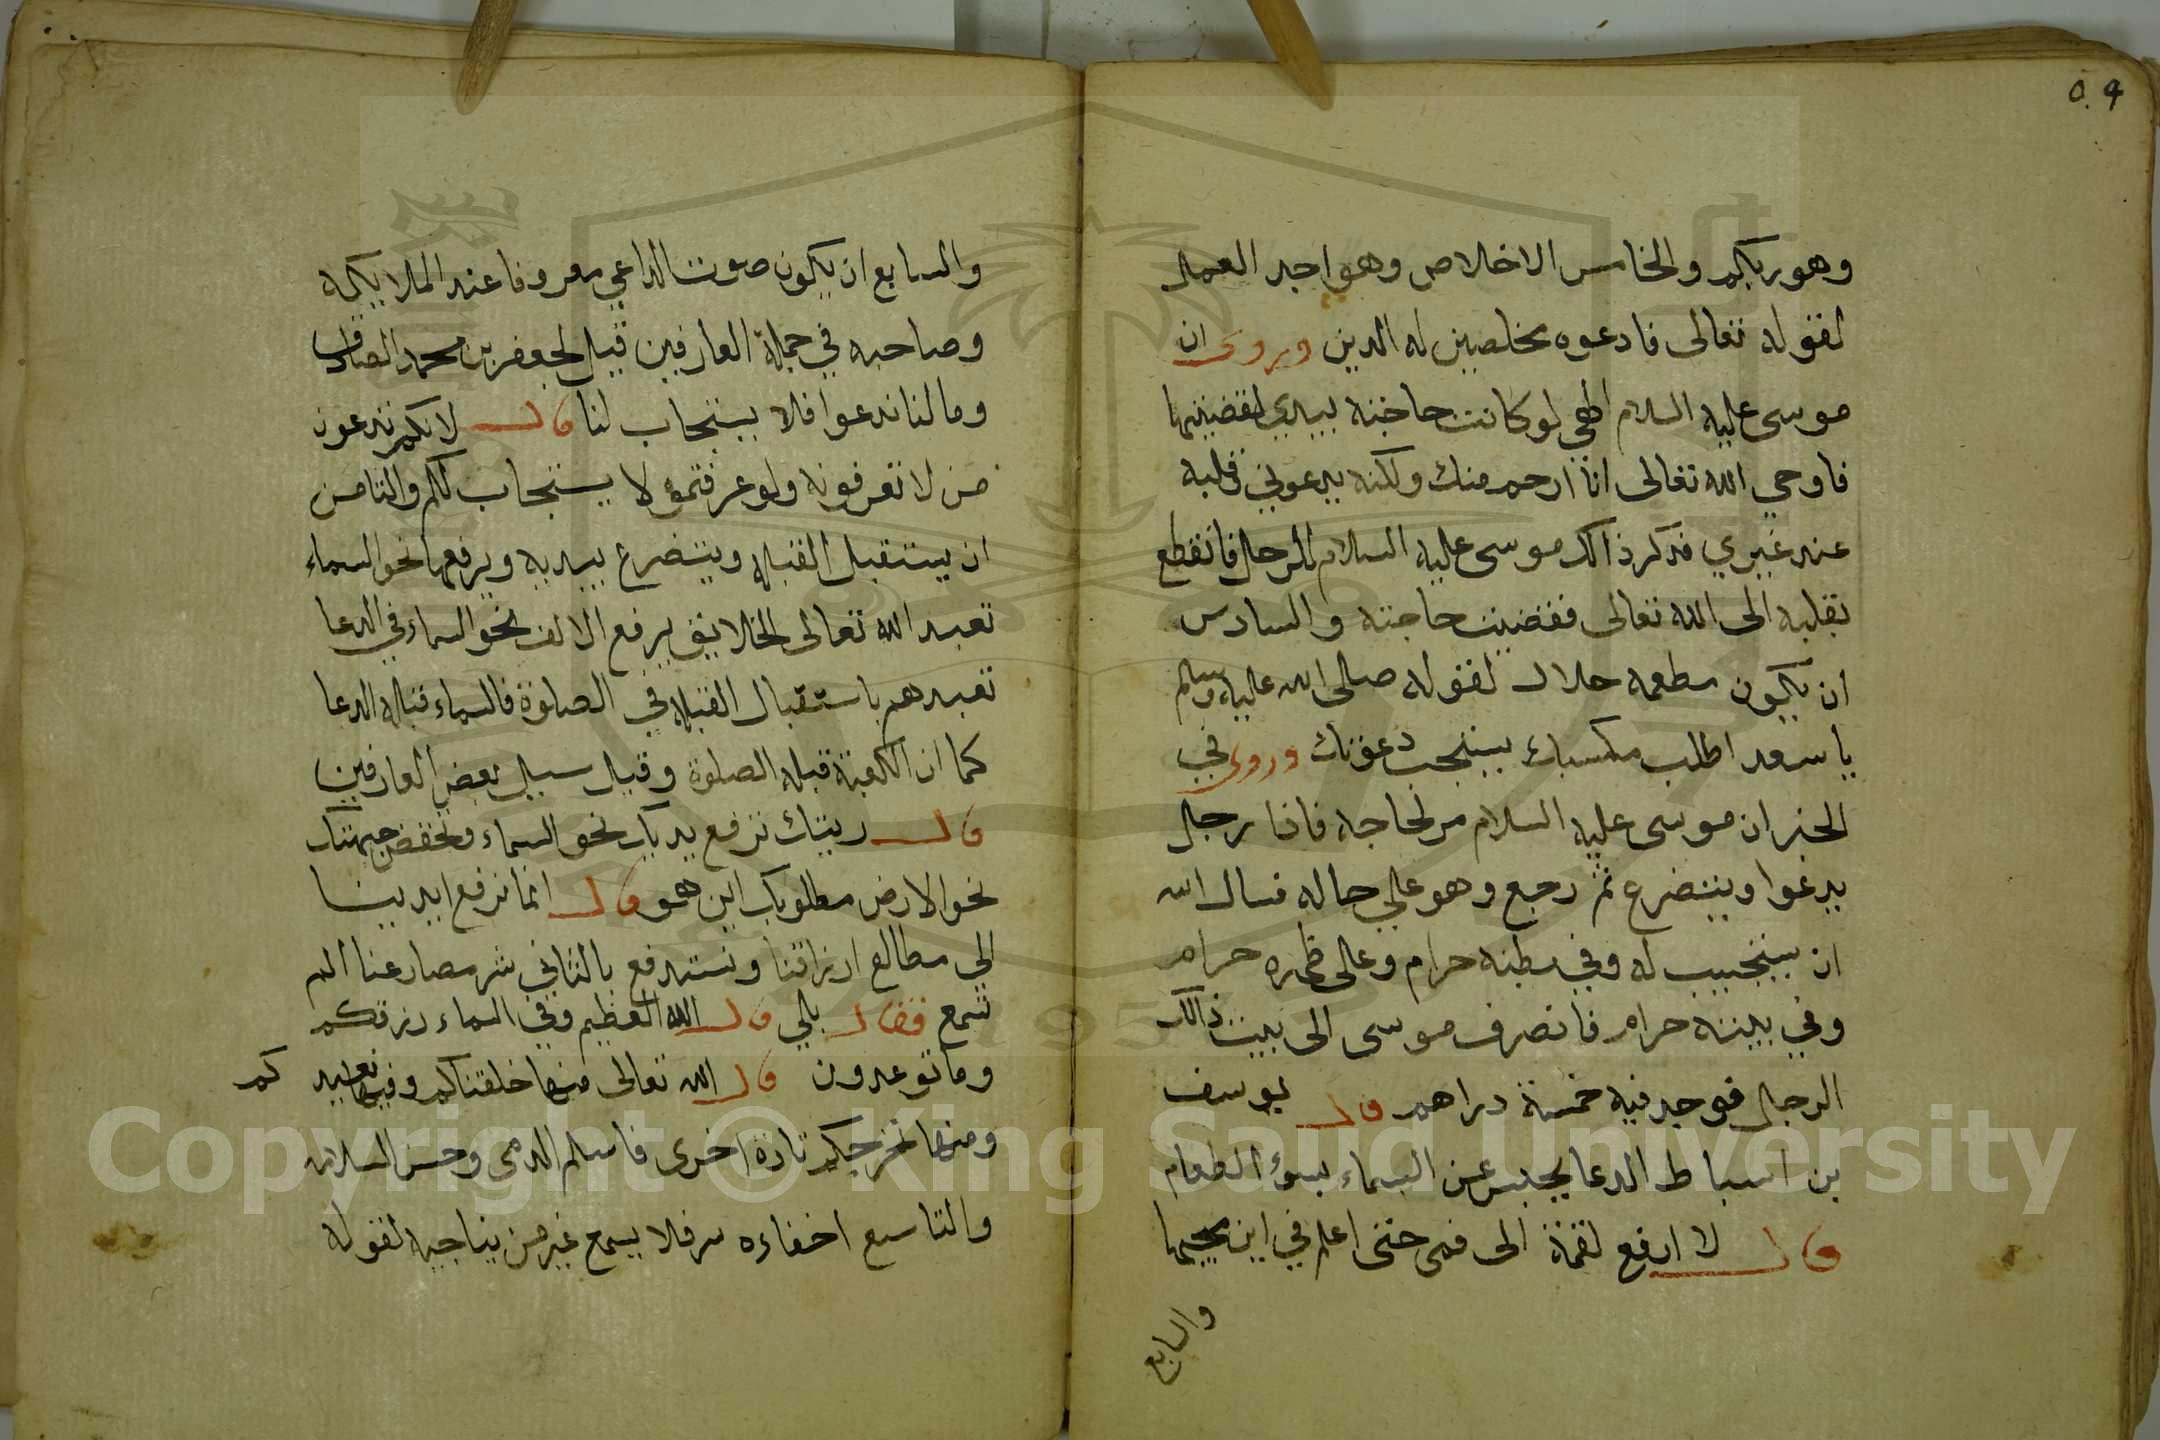 ٥٩
وهو ربكم والخامس الاخلاص وهو اجد العمل
لقوله تعالى فادعوه مخلصين له الدين وروى ان
موسى عليه السلام الهي لو كانت حاجته بيدي لقضيتها
فاوحي الله تعالى انا ارحم منك ولكنه يدعوني وقلبه
عند غيري فذكر ذالك موسى عليه السلام للرجل فانقطع
بقلبه الى الله تعالى فقضيت حاجته والسادس
ان يكون مطعمه حلال لقوله صلى الله عليه وسلم
يا سعد اطلب مكسبك يستجب دعوتك وروى في
الخبر ان موسى عليه السلام مر لحاجه فاذا رجل
يدعوا ويتضرع ثم رجع وهو علي حاله فسال الله
ان يستجيب له وفي بطنه حرام وعلى ظهره حرام
وفي بيته حرام فانصرف موسى الى بيت ذالك
الرجل فوجد فيه خمسة دراهم قال يوسف
بن اسباط الدعا يحبس عن السماء بسوء الطعام
قال لا ارفع لقمة الى فمى حتى اعلم في اين يجيبها
والسابع
والسابع ان يكون صوت الداعي معروفا عند الملايكه
وصاحبه في جملة العارفين قيل لجعفر بن محمد الصادق
وما لنا ندعوا فلا يستجاب لنا قال لانكم تدعون
من لا تعرفونه ولو عرفتموه لا يستجاب لكم والثامن
ان يستقبل القبله ويتضرع بيديه ويرفعها نحو السماء
تعبد الله تعالى الخلايق يرفع الالف نحو السماء في الدعا
تعبدهم باستقبال القبله في الصلوة فالسماء قباله الدعا
كما ان الكعبة قبله الصلوة وقيل سيل بعض العارفين
قال ريتك ترفع يديك نحو السماء وتخفض جبهتك
نحو الارض مطلوبك اين هو قال انما نرفع ايدينا
الي مطالع ارزاقنا ونستدفع بالثاني شر مصارعنا الم
تسمع فقال بلي قال الله العظيم وفي السماء رزقكم
وما توعدون قال الله تعالى منها خلقناكم وفيها نعيد كم
ومنها نخرجكم تارة اخرى فاسلم الدمى وحسن السلام
والتاسع اخفاءه سر فلا يسمع غير من يناجيه لقوله
Copyright © King Saud University
1957